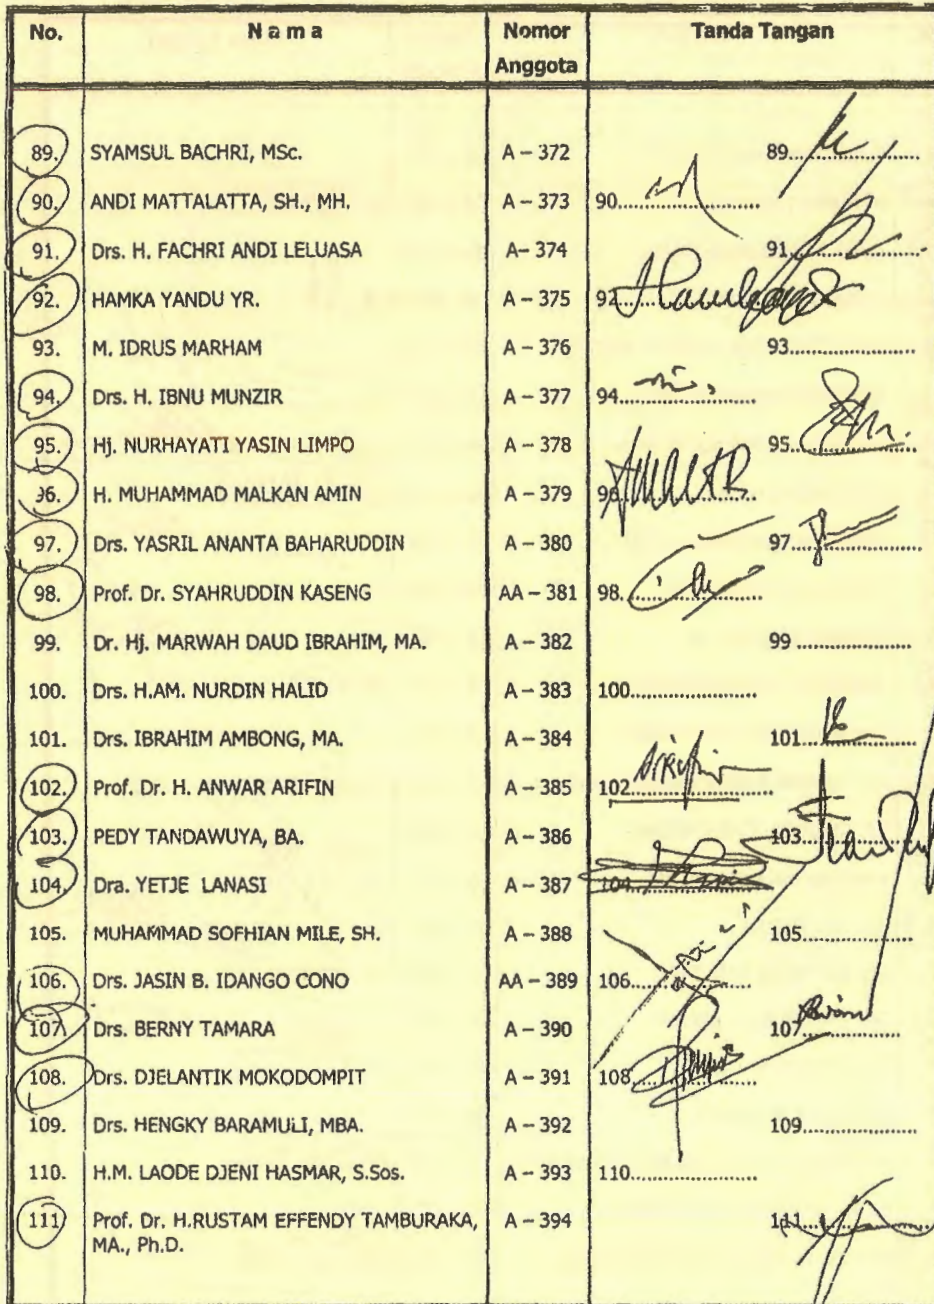 No. Nama Nomor Anggota Tanda Tangan
89. SYAMSUL BACHRI, MSc. A – 372 89....................
90. ANDI MATTALATTA, SH., MH. A – 373 90......................
91. Drs. H. FACHRI ANDI LELUASA A– 374 91....................
92. HAMKA YANDU YR. A – 375 92
93. M. IDRUS MARHAM A – 376 93....................
94. Drs. H. IBNU MUNZIR A – 377 94......................
95. Hj. NURHAYATI YASIN LIMPO A – 378 95....................
96. H. MUHAMMAD MALKAN AMIN A – 379 96......................
97. Drs. YASRIL ANANTA BAHARUDDIN A – 380 97....................
98. Prof. Dr. SYAHRUDDIN KASENG AA – 381 98......................
99. Dr. Hj. MARWAH DAUD IBRAHIM, MA. A – 382 99 ....................
100. Drs. H.AM. NURDIN HALID A – 383 100....................
101. Drs. IBRAHIM AMBONG, MA. A – 384 101....................
102. Prof. Dr. H. ANWAR ARIFIN A – 385 102....................
103. PEDY TANDAWUYA, BA. A – 386 103....................
104. Dra. YETJE LANASI A – 387 104....................
105. MUHAMMAD SOFHIAN MILE, SH. A – 388 105....................
106. Drs. JASIN B. IDANGO CONO AA – 389 106....................
107. Drs. BERNY TAMARA A – 390 107....................
108. Drs. DJELANTIK MOKODOMPIT A – 391 108....................
109. Drs. HENGKY BARAMULI, MBA. A – 392 109....................
110. H.M. LAODE DJENI HASMAR, S.Sos. A – 393 110....................
111. Prof. Dr. H.RUSTAM EFFENDY TAMBURAKA, A – 394 111....................
MA., Ph.D.